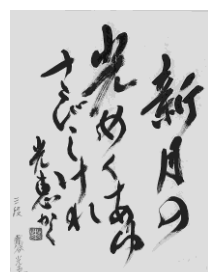 新月の
光めくあゆ
さびしけれ
光恵かく
三段